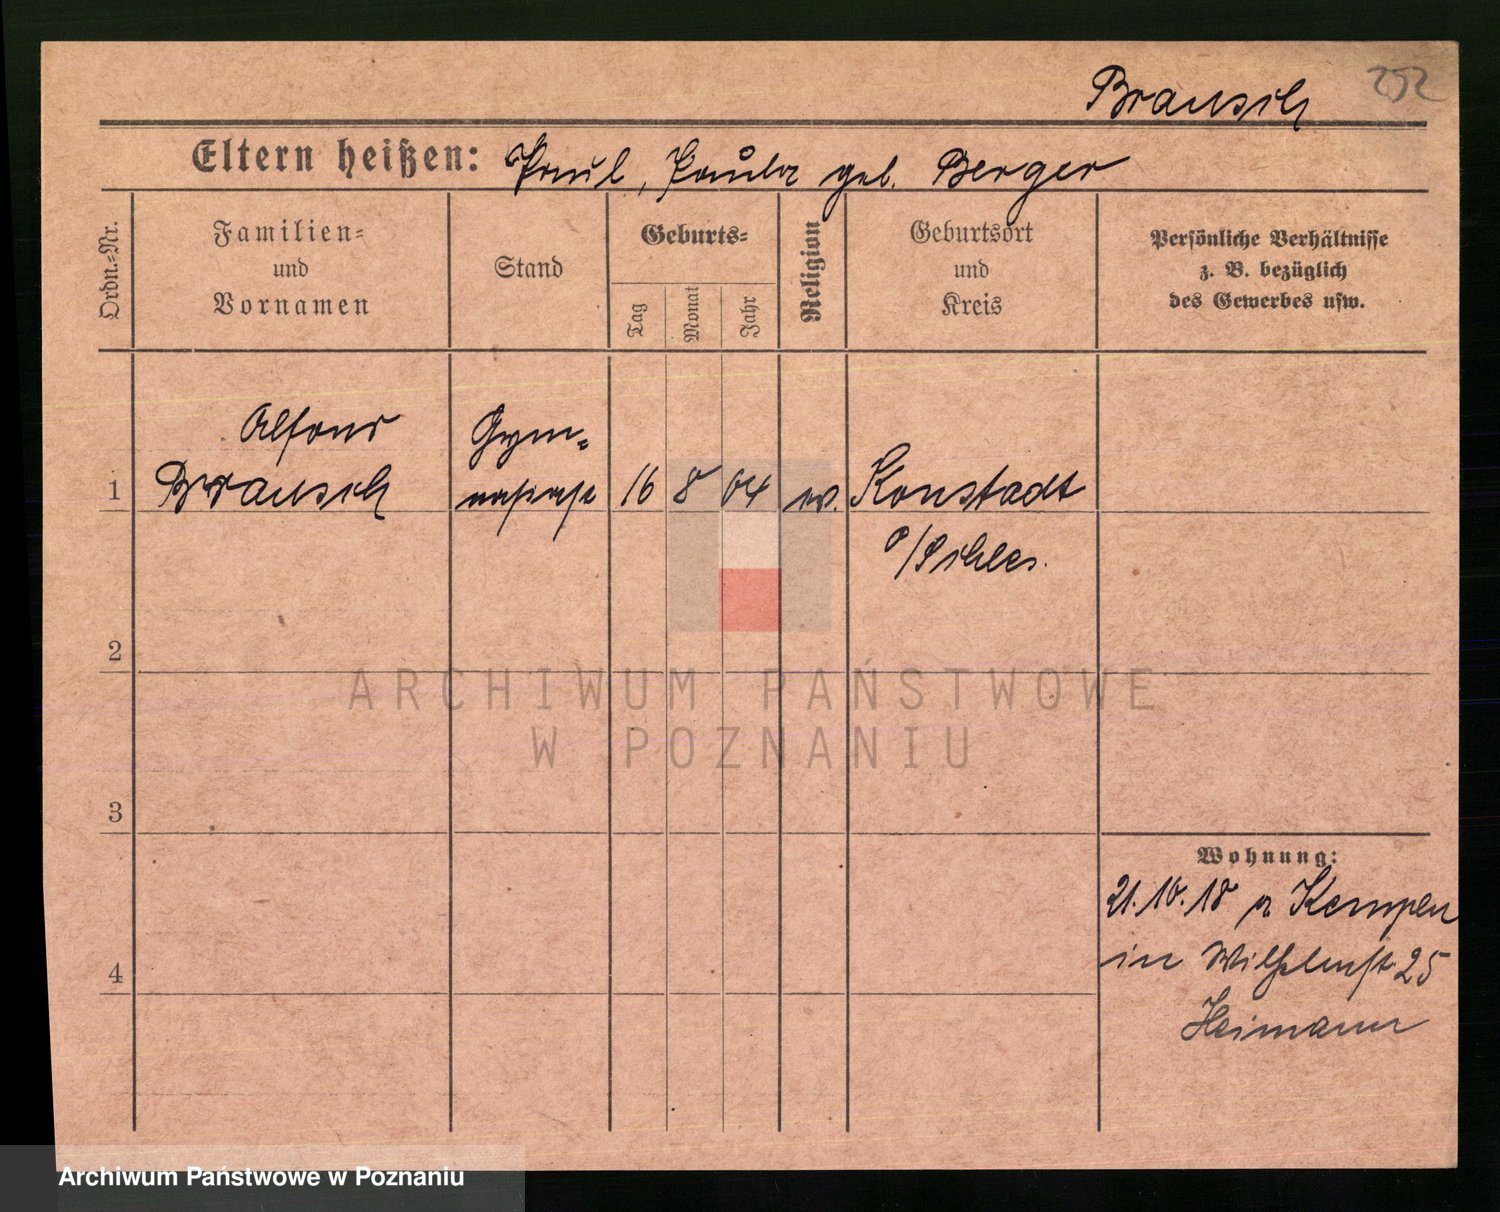 Brausch 252
Eltern heißen: Paul, Paula geb. Berger
Ordn.-Nr.
Familien-
und
Vornamen
Stand
Geburts-
Tag
Monat
Jahr
Religion
Geburtsort
und
Kreis
Persönliche Verhältnisse
z. B. bezüglich
des Gewerbes usw.
1
Alfons
Brausch
Gym-
nasiast
16 8 04 ev. Konstadt
O/Schles.
2
3
4
Wohnung:
21.10.18 Kempen
in Wilhelmst. 25
Heimann
ARCHIWUM PAŃSTWOWE
W POZNANIU
Archiwum Państwowe w Poznaniu